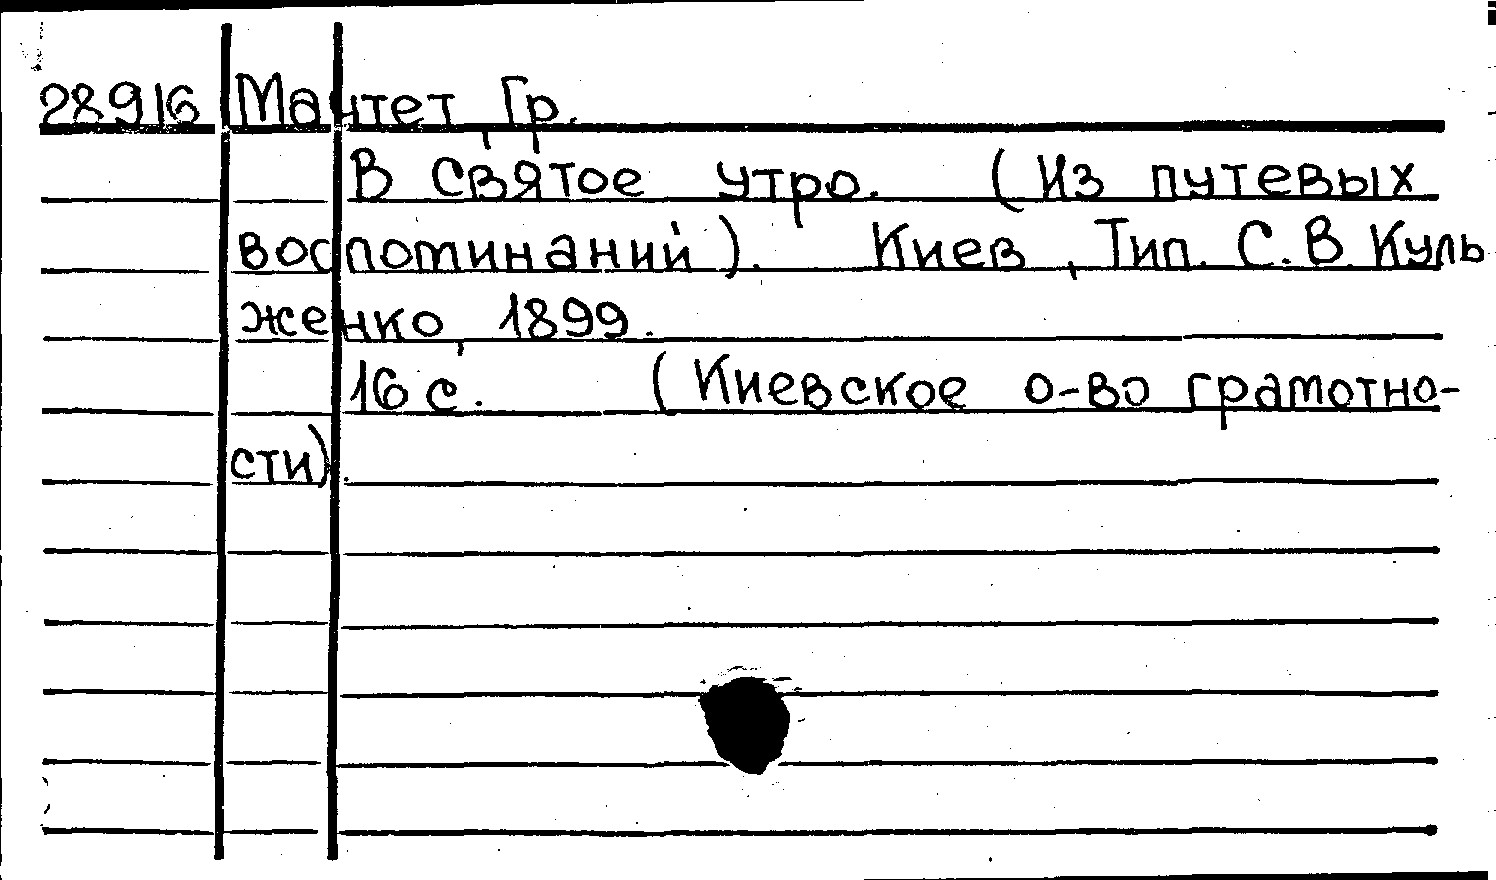 28916 Мачтет, Гр.
В святое утро. (Из путевых
воспоминаний). Киев, Тип. С.В. Куль
женко, 1899.
16 с. (Киевское о-во грамотно-
сти).